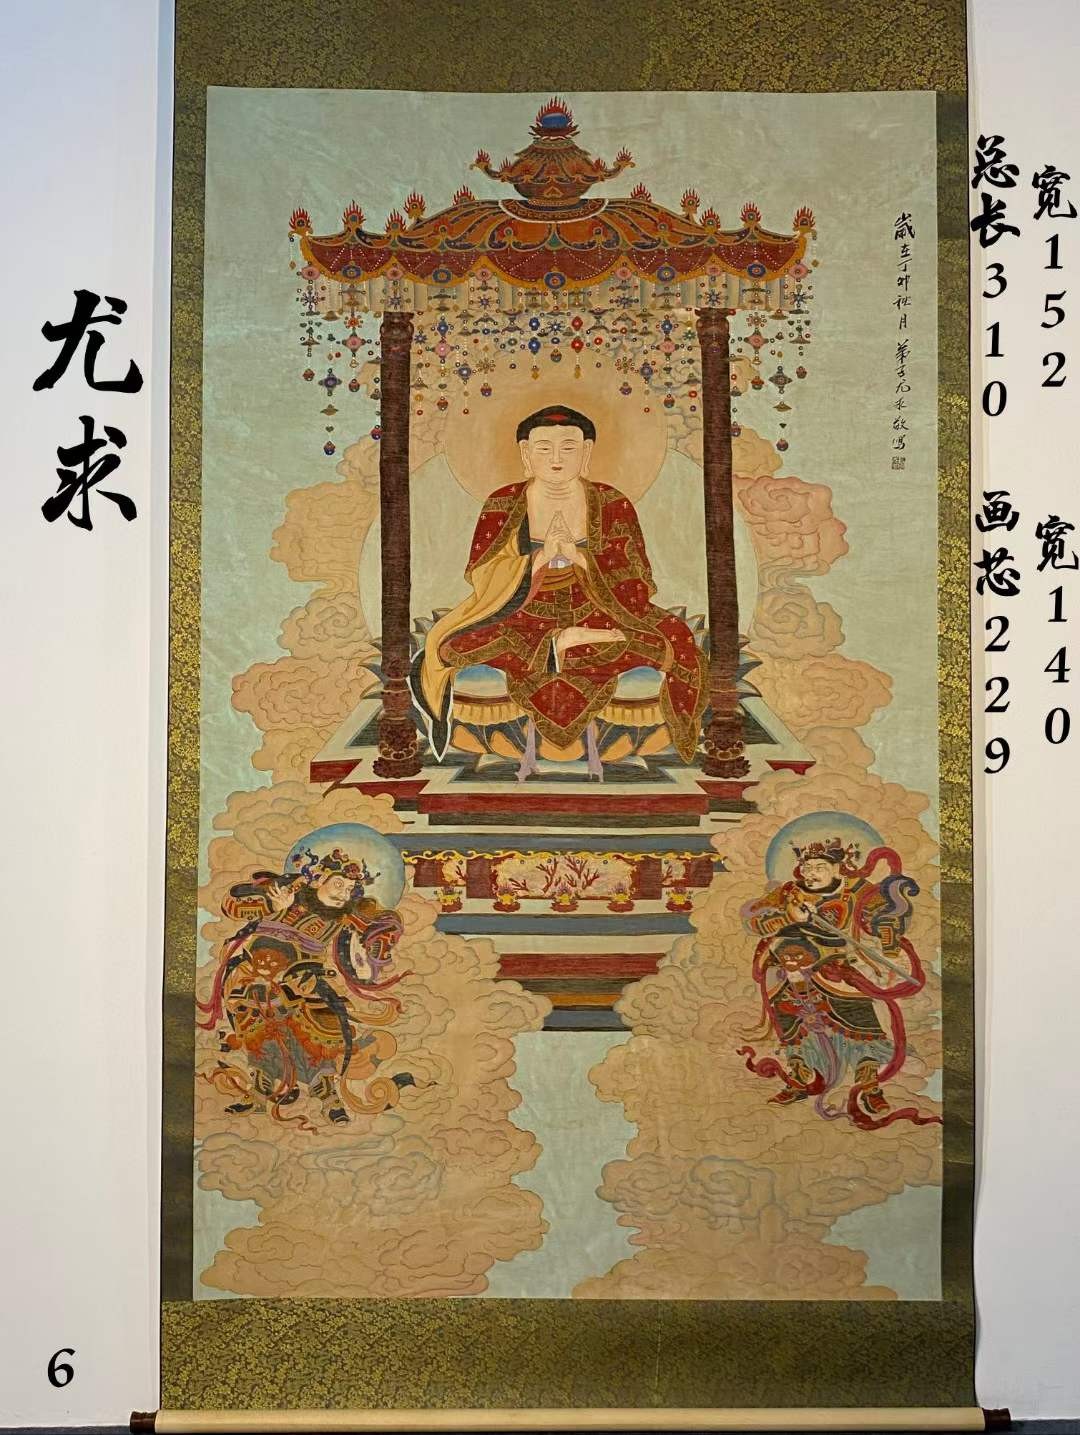 尤求
总长310
宽152
画芯229
宽140
歲在丁卯秋月 弟子尤求敬寫
6